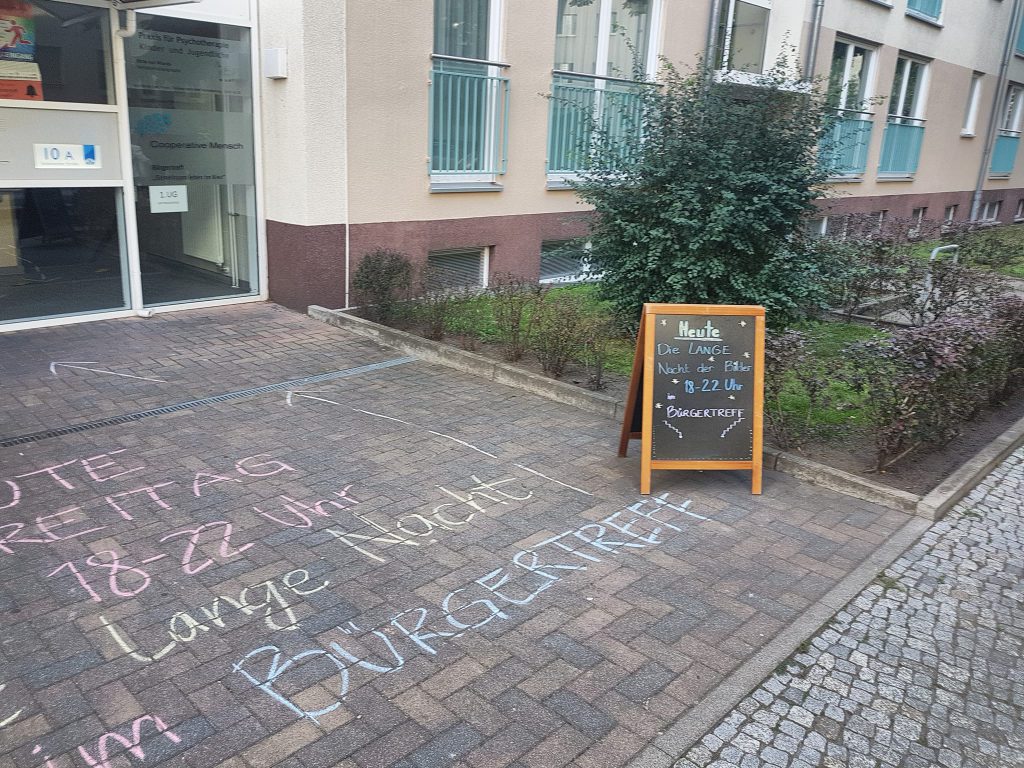 Praxis für Psychotherapie
Kinder und Jugendliche
Cooperative Mensch
Bürgertreff
10 A
1. UG
Heute
Die LANGE
Nacht der Bilder
18-22 Uhr
im
BÜRGERTREFF
UTE
REITAG
18-22 Uhr
Lange Nacht
im BÜRGERTREFF